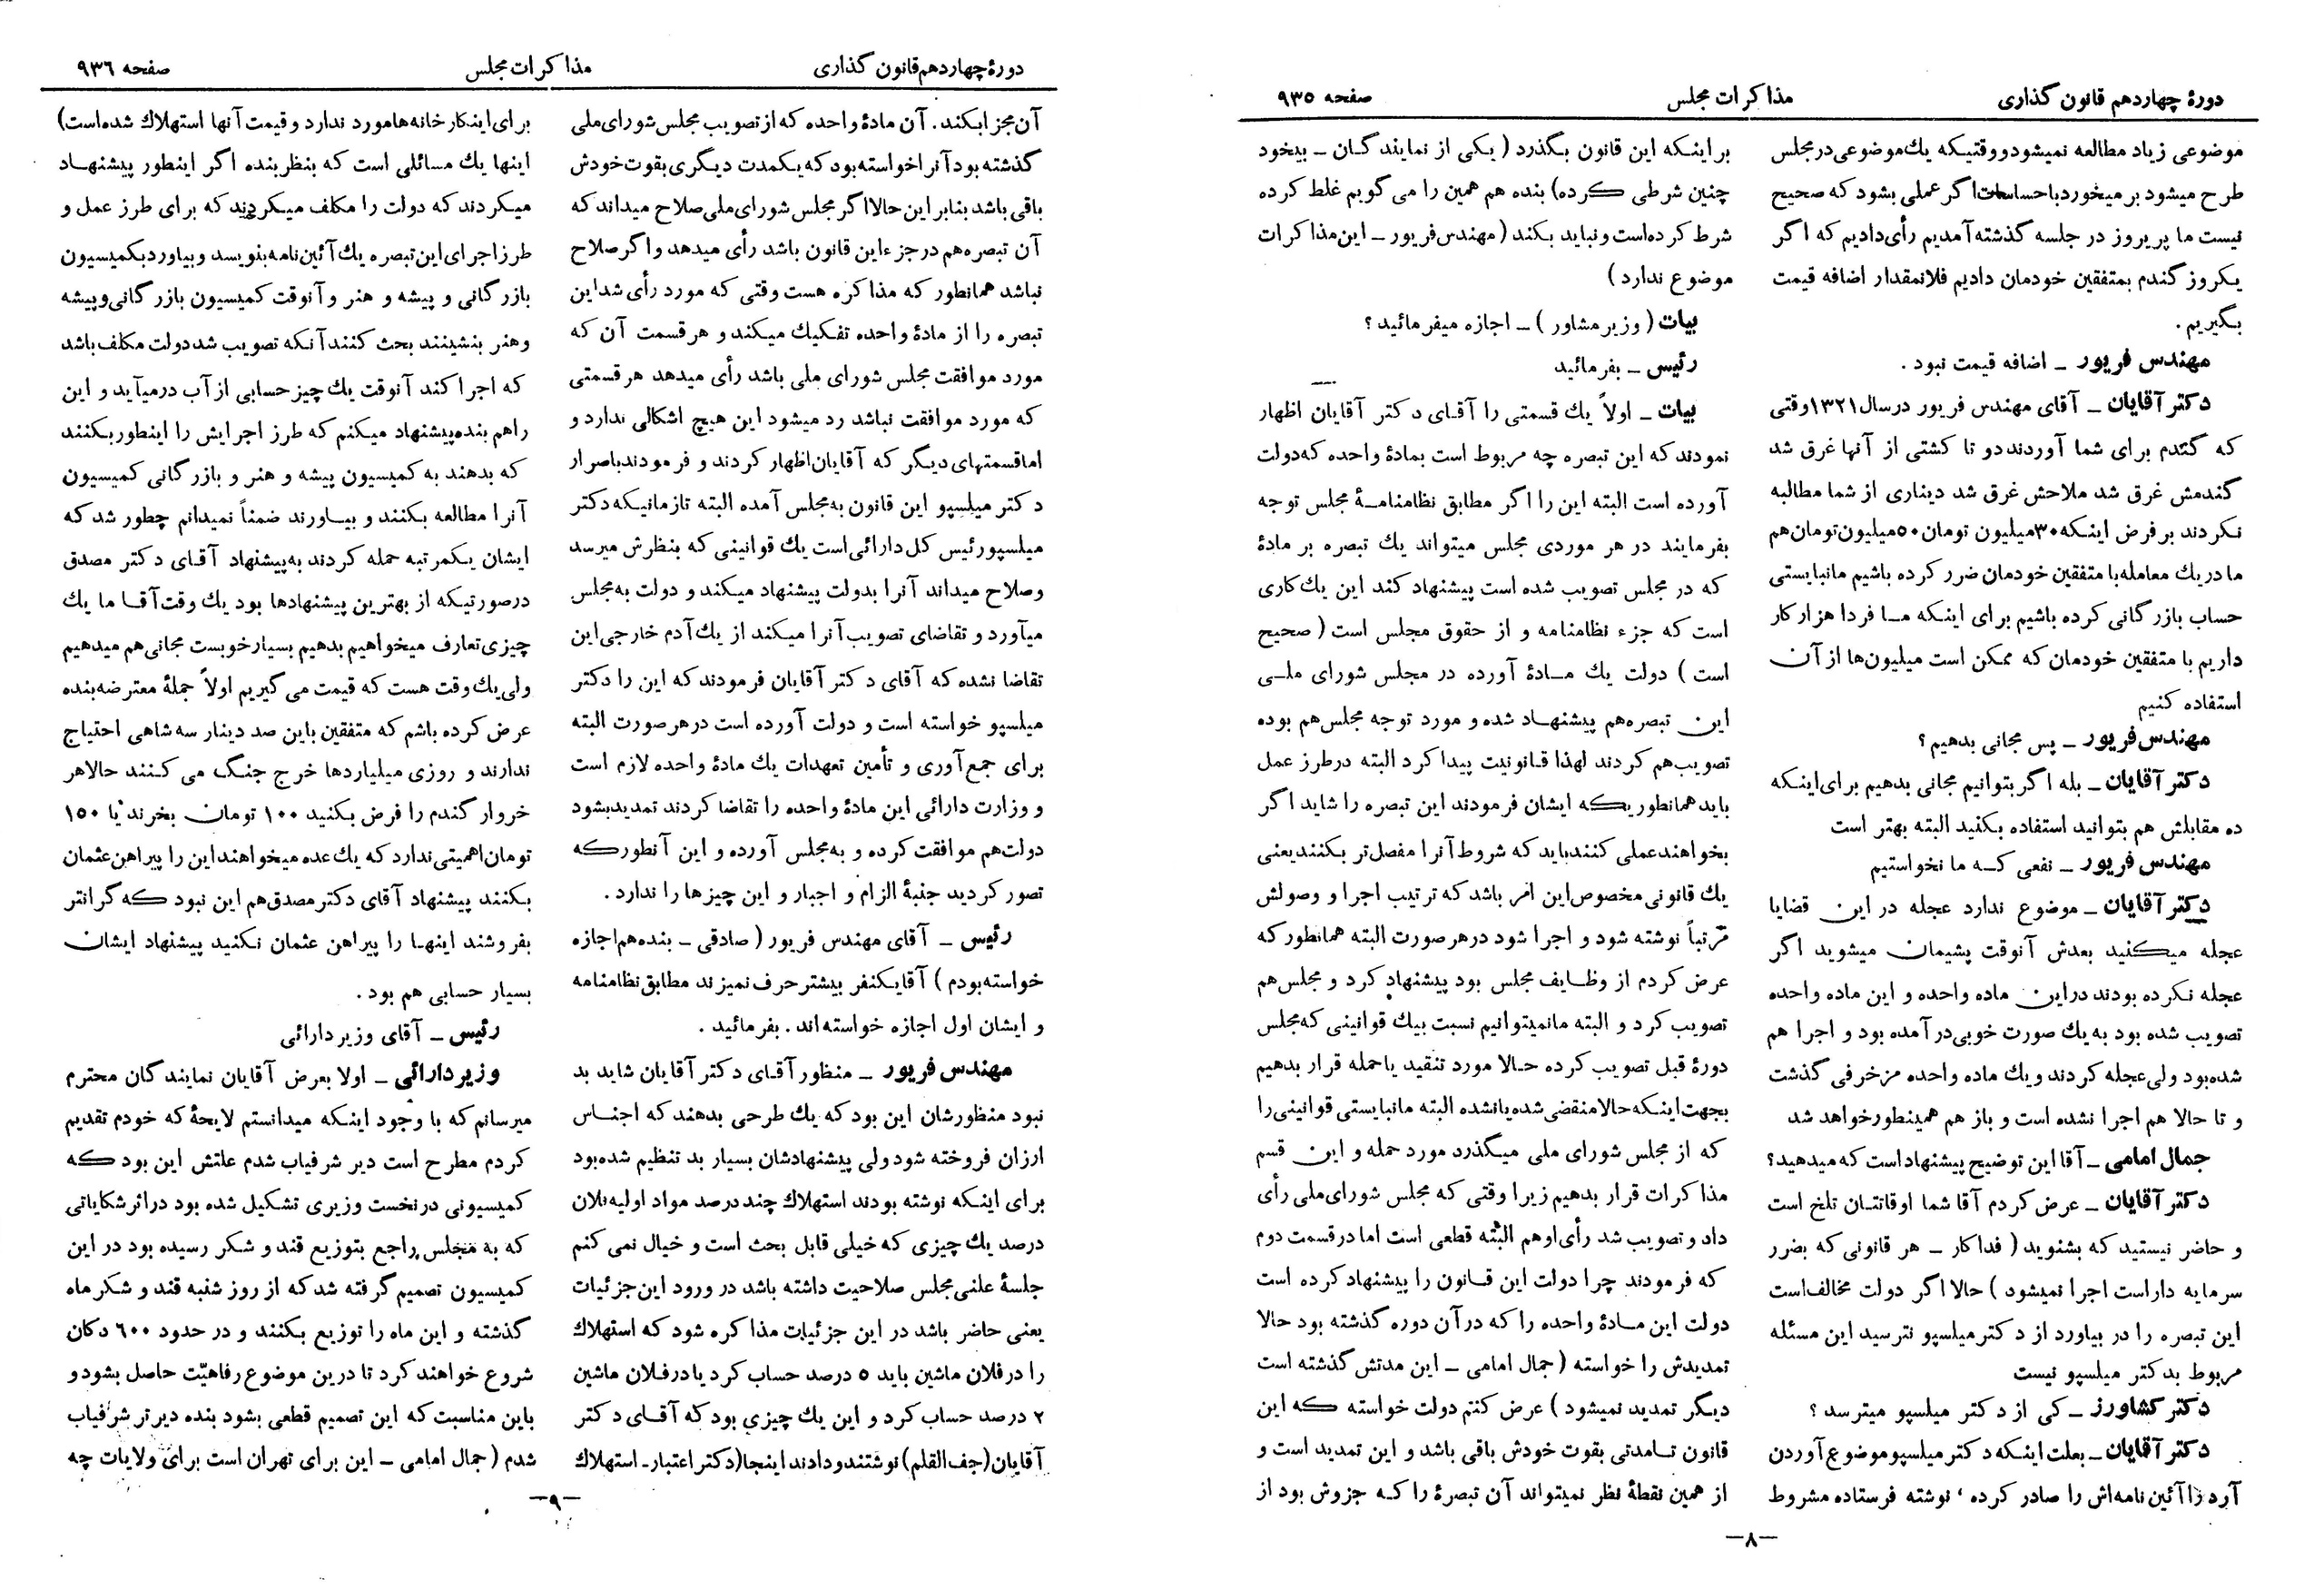 دورهٔ چهاردهم قانون گذاری
مذاکرات مجلس
صفحه ۹۳۵
موضوعی زیاد مطالعه نمیشود ووقتیکه یك موضوعی درمجلس
طرح میشود بر میخورد باحساسات اگر عملی بشود که صحیح
نیست ما پریروز در جلسه گذشته آمدیم رأی دادیم که اگر
یکروز گندم بمتفقین خودمان دادیم فلانمقدار اضافه قیمت
بگیریم.
مهندس فریور ـ اضافه قیمت نبود.
دکتر آقایان ـ آقای مهندس فریور درسال ۱۳۲۱ وقتی
که گندم برای شما آوردند دو تا کشتی از آنها غرق شد
گندمش غرق شد ملاحش غرق شد دیناری از شما مطالبه
نکردند بر فرض اینکه ۳۰ میلیون تومان ۵۰ میلیون تومان هم
ما در یك معامله با متفقین خودمان ضرر کرده باشیم مانبایستی
حساب بازرگانی کرده باشیم برای اینکه ما فردا هزار کار
داریم با متفقین خودمان که ممکن است میلیون‌ها از آن
استفاده کنیم
مهندس فریور ـ پس مجانی بدهیم؟
دکتر آقایان ـ بله اگر بتوانیم مجانی بدهیم برای اینکه
ده مقابلش هم بتوانید استفاده بکنید البته بهتر است
مهندس فریور ـ نفعی که ما نخواستیم
دکتر آقایان ـ موضوع ندارد عجله در این قضایا
عجله میکنید بعدش آنوقت پشیمان میشوید اگر
عجله نکرده بودند دراین ماده واحده و این ماده واحده
تصویب شده بود به یك صورت خوبی در آمده بود و اجرا هم
شده بود ولی عجله کردند و یك ماده واحده مزخرفی گذشت
و تا حالا هم اجرا نشده است و باز هم همینطور خواهد شد
جمال امامی ـ آقا این توضیح پیشنهاد است که میدهید؟
دکتر آقایان ـ عرض کردم آقا شما اوقاتتان تلخ است
و حاضر نیستید که بشنوید (فداکار ـ هر قانونی که بضرر
سرمایه دار است اجرا نمیشود) حالا اگر دولت مخالف است
این تبصره را در بیاورد از دکتر میلسپو نترسید این مسئله
مربوط بدکتر میلسپو نیست
دکتر کشاورز ـ کی از دکتر میلسپو میترسد؟
دکتر آقایان ـ بعلت اینکه دکتر میلسپو موضوع آوردن
آرد را آئین نامه‌اش را صادر کرده، نوشته فرستاده مشروط
بر اینکه این قانون بگذرد (یکی از نمایندگان ـ بیخود
چنین شرطی کرده) بنده هم همین را می گویم غلط کرده
شرط کرده است و نباید بکند (مهندس فریور ـ این مذاکرات
موضوع ندارد)
بیات (وزیر مشاور) ـ اجازه میفرمائید؟
رئیس ـ بفرمائید
بیات ـ اولاً یك قسمتی را آقای دکتر آقایان اظهار
نمودند که این تبصره چه مربوط است بمادهٔ واحده که دولت
آورده است البته این را اگر مطابق نظامنامهٔ مجلس توجه
بفرمایند در هر موردی مجلس میتواند یك تبصره بر مادهٔ
که در مجلس تصویب شده است پیشنهاد کند این یك کاری
است که جزء نظامنامه و از حقوق مجلس است (صحیح
است) دولت یك مادهٔ آورده در مجلس شورای ملی
این تبصره هم پیشنهاد شده و مورد توجه مجلس هم بوده
تصویب هم کردند لهذا قانونیت پیدا کرد البته درطرز عمل
باید همانطوریکه ایشان فرمودند این تبصره را شاید اگر
بخواهند عملی کنند باید که شروط آنرا مفصل تر بکنند یعنی
یك قانونی مخصوص این امر باشد که ترتیب اجرا و وصولش
مرتباً نوشته شود و اجرا شود درهرصورت البته همانطور که
عرض کردم از وظایف مجلس بود پیشنهاد کرد و مجلس هم
تصویب کرد و البته مانمیتوانیم نسبت بیك قوانینی که مجلس
دورهٔ قبل تصویب کرده حالا مورد تنقید یا حمله قرار بدهیم
بجهت اینکه حالا منقضی شده یا نشده البته مانبایستی قوانینی را
که از مجلس شورای ملی میگذرد مورد حمله و این قسم
مذاکرات قرار بدهیم زیرا وقتی که مجلس شورای ملی رأی
داد و تصویب شد رأی او هم البته قطعی است اما درقسمت دوم
که فرمودند چرا دولت این قانون را پیشنهاد کرده است
دولت این مادهٔ واحده را که در آن دوره گذشته بود حالا
تمدیدش را خواسته (جمال امامی ـ این مدتش گذشته است
دیگر تمدید نمیشود) عرض کنم دولت خواسته که این
قانون تامدتی بقوت خودش باقی باشد و این تمدید است و
از همین نقطهٔ نظر نمیتواند آن تبصرهٔ را که جزوش بود از
ـ۸ـ
دورهٔ چهاردهم قانون گذاری
مذاکرات مجلس
صفحه ۹۳٦
آن مجزا بکند. آن مادهٔ واحده که از تصویب مجلس شورای ملی
گذشته بود آنرا خواسته بود که یکمدت دیگری بقوت خودش
باقی باشد بنابر این حالا اگر مجلس شورای ملی صلاح میداند که
آن تبصره هم در جزء این قانون باشد رأی میدهد و اگر صلاح
نباشد همانطور که مذاکره هست وقتی که مورد رأی شد این
تبصره را از مادهٔ واحده تفکیك میکند و هر قسمت آن که
مورد موافقت مجلس شورای ملی باشد رأی میدهد هر قسمتی
که مورد موافقت نباشد رد میشود این هیچ اشکالی ندارد و
اما قسمتهای دیگر که آقایان اظهار کردند و فرمودند باصرار
دکتر میلسپو این قانون به مجلس آمده البته تازمانیکه دکتر
میلسپو رئیس کل دارائی است یك قوانینی که بنظرش میرسد
وصلاح میداند آنرا بدولت پیشنهاد میکند و دولت به مجلس
میآورد و تقاضای تصویب آنرا میکند از یك آدم خارجی این
تقاضا نشده که آقای دکتر آقایان فرمودند که این را دکتر
میلسپو خواسته است و دولت آورده است درهر صورت البته
برای جمع آوری و تأمین تعهدات یك مادهٔ واحده لازم است
و وزارت دارائی این مادهٔ واحده را تقاضا کردند تمدید بشود
دولت هم موافقت کرده و به مجلس آورده و این آنطورکه
تصور کردید جنبهٔ الزام و اجبار و این چیزها را ندارد.
رئیس ـ آقای مهندس فریور (صادقی ـ بنده هم اجازه
خواسته بودم) آقا یکنفر بیشتر حرف نمیزند مطابق نظامنامه
و ایشان اول اجازه خواسته‌اند. بفرمائید.
مهندس فریور ـ منظور آقای دکتر آقایان شاید بد
نبود منظورشان این بود که یك طرحی بدهند که اجناس
ارزان فروخته شود ولی پیشنهادشان بسیار بد تنظیم شده بود
برای اینکه نوشته بودند استهلاك چند درصد مواد اولیه فلان
درصد یك چیزی که خیلی قابل بحث است و خیال نمی کنم
جلسهٔ علنی مجلس صلاحیت داشته باشد در ورود این جزئیات
یعنی حاضر باشد در این جزئیات مذاکره شود که استهلاك
را درفلان ماشین باید ۵ درصد حساب کرد یا درفلان ماشین
۲ درصد حساب کرد و این یك چیزی بود که آقای دکتر
آقایان (جف القلم) نوشتند و دادند اینجا (دکتر اعتبار ـ استهلاك
برای اینکارخانه‌ها مورد ندارد و قیمت آنها استهلاك شده است)
اینها یك مسائلی است که بنظر بنده اگر اینطور پیشنهاد
میکردند که دولت را مکلف میکردند که برای طرز عمل و
طرز اجرای این تبصره یك آئین نامه بنویسد و بیاورد بکمیسیون
بازرگانی و پیشه و هنر و آنوقت کمیسیون بازرگانی و پیشه
وهنر بنشینند بحث کنند آنکه تصویب شد دولت مکلف باشد
که اجرا کند آنوقت یك چیز حسابی از آب درمیآید و این
راهم بنده پیشنهاد میکنم که طرز اجرایش را اینطور بکنند
که بدهند به کمیسیون پیشه و هنر و بازرگانی کمیسیون
آنرا مطالعه بکنند و بیاورند ضمناً نمیدانم چطور شد که
ایشان یکمرتبه حمله کردند به پیشنهاد آقای دکتر مصدق
درصورتیکه از بهترین پیشنهادها بود یك وقت آقا ما یك
چیزی تعارف میخواهیم بدهیم بسیار خوبست مجانی هم میدهیم
ولی یك وقت هست که قیمت می گیریم اولاً جملهٔ معترضه بنده
عرض کرده باشم که متفقین باین صد دینار سه شاهی احتیاج
ندارند و روزی میلیاردها خرج جنگ می کنند حالا هر
خروار گندم را فرض بکنید ۱۰۰ تومان بخرند یا ۱۵۰
تومان اهمیتی ندارد که یك عده میخواهند این را پیراهن عثمان
بکنند پیشنهاد آقای دکتر مصدق هم این نبود که گرانتر
بفروشند اینها را پیراهن عثمان نکنید پیشنهاد ایشان
بسیار حسابی هم بود.
رئیس ـ آقای وزیر دارائی
وزیر دارائی ـ اولا بعرض آقایان نمایندگان محترم
میرسانم که با وجود اینکه میدانستم لایحهٔ که خودم تقدیم
کردم مطرح است دیر شرفیاب شدم علتش این بود که
کمیسیونی در نخست وزیری تشکیل شده بود در اثر شکایاتی
که به مجلس راجع بتوزیع قند و شکر رسیده بود در این
کمیسیون تصمیم گرفته شد که از روز شنبه قند و شکر ماه
گذشته و این ماه را توزیع بکنند و در حدود ۶۰۰ دکان
شروع خواهند کرد تا درین موضوع رفاهیّت حاصل بشود و
باین مناسبت که این تصمیم قطعی بشود بنده دیرتر شرفیاب
شدم (جمال امامی ـ این برای تهران است برای ولایات چه
ـ۹ـ